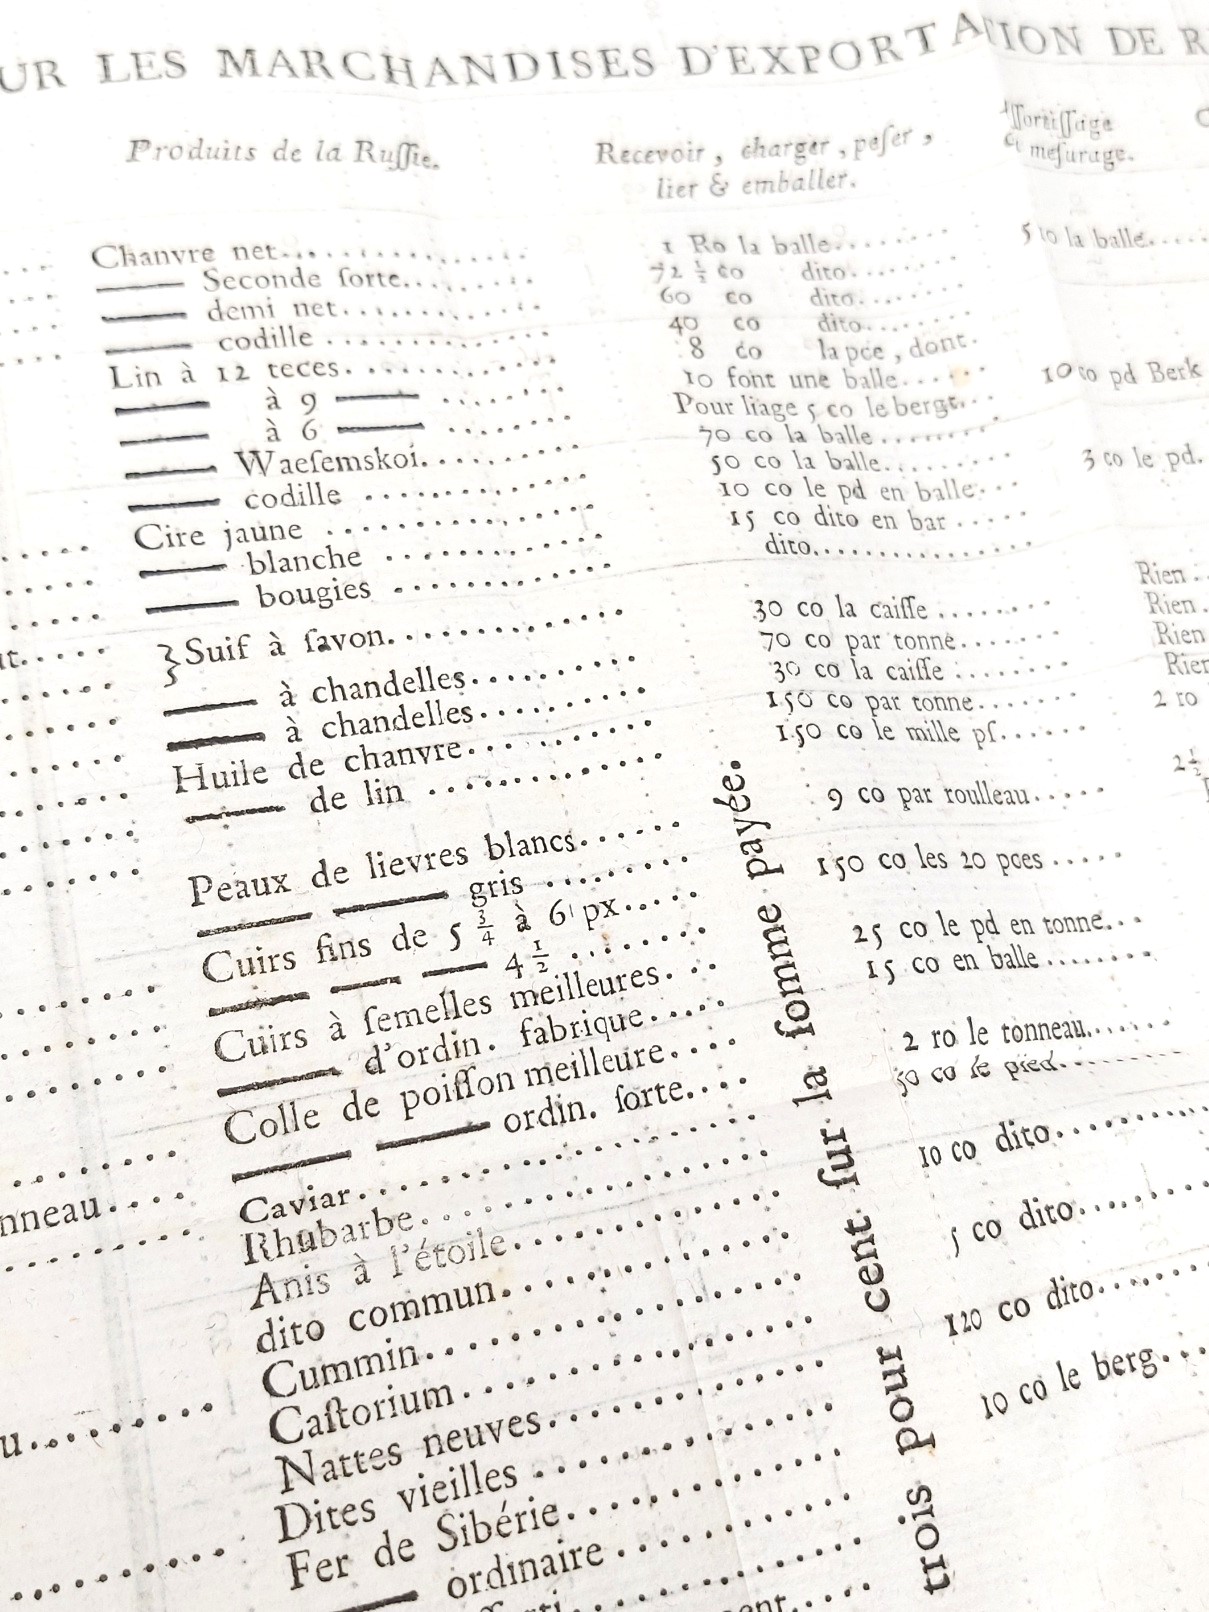 UR LES MARCHANDISES D'EXPORTATION DE R
Produits de la Ruſſie.
Recevoir, charger, peſer,
lier & emballer.
Aſſortiſſage
& meſurage.
Chanvre net
—— Seconde ſorte
—— demi net
—— codille
Lin à 12 teces
—— à 9 ——
—— à 6 ——
—— Waeſemskoi
—— codille
Cire jaune
—— blanche
—— bougies
Suif à ſavon
—— à chandelles
—— à chandelles
Huile de chanvre
—— de lin
Peaux de lievres blancs
—— —— gris
Cuirs fins de 5 3/4 à 6 px
—— —— —— 4 1/2
Cuirs à ſemelles meilleures
—— d'ordin. fabrique
Colle de poiſſon meilleure
—— —— ordin. ſorte
Caviar
Rhubarbe
Anis à l'étoile
dito commun
Cummin
Caſtorium
Nattes neuves
Dites vieilles
Fer de Sibérie
—— ordinaire
1 Ro la balle
72 1/2 co dito
60 co dito
40 co dito
8 co la pce, dont
10 font une balle
Pour liage 5 co le bergt
70 co la balle
50 co la balle
10 co le pd en balle
15 co dito en bar
dito
30 co la caiſſe
70 co par tonne
30 co la caiſſe
150 co par tonne
150 co le mille pſ
9 co par roulleau
150 co les 20 pces
25 co le pd en tonne
15 co en balle
2 ro le tonneau
50 co le pied
10 co dito
5 co dito
120 co dito
10 co le berg
trois pour cent ſur la ſomme payée.
5 ro la balle
10 co pd Berk
3 co le pd.
Rien
Rien
Rien
Rien
2 ro
2 1/2
nneau